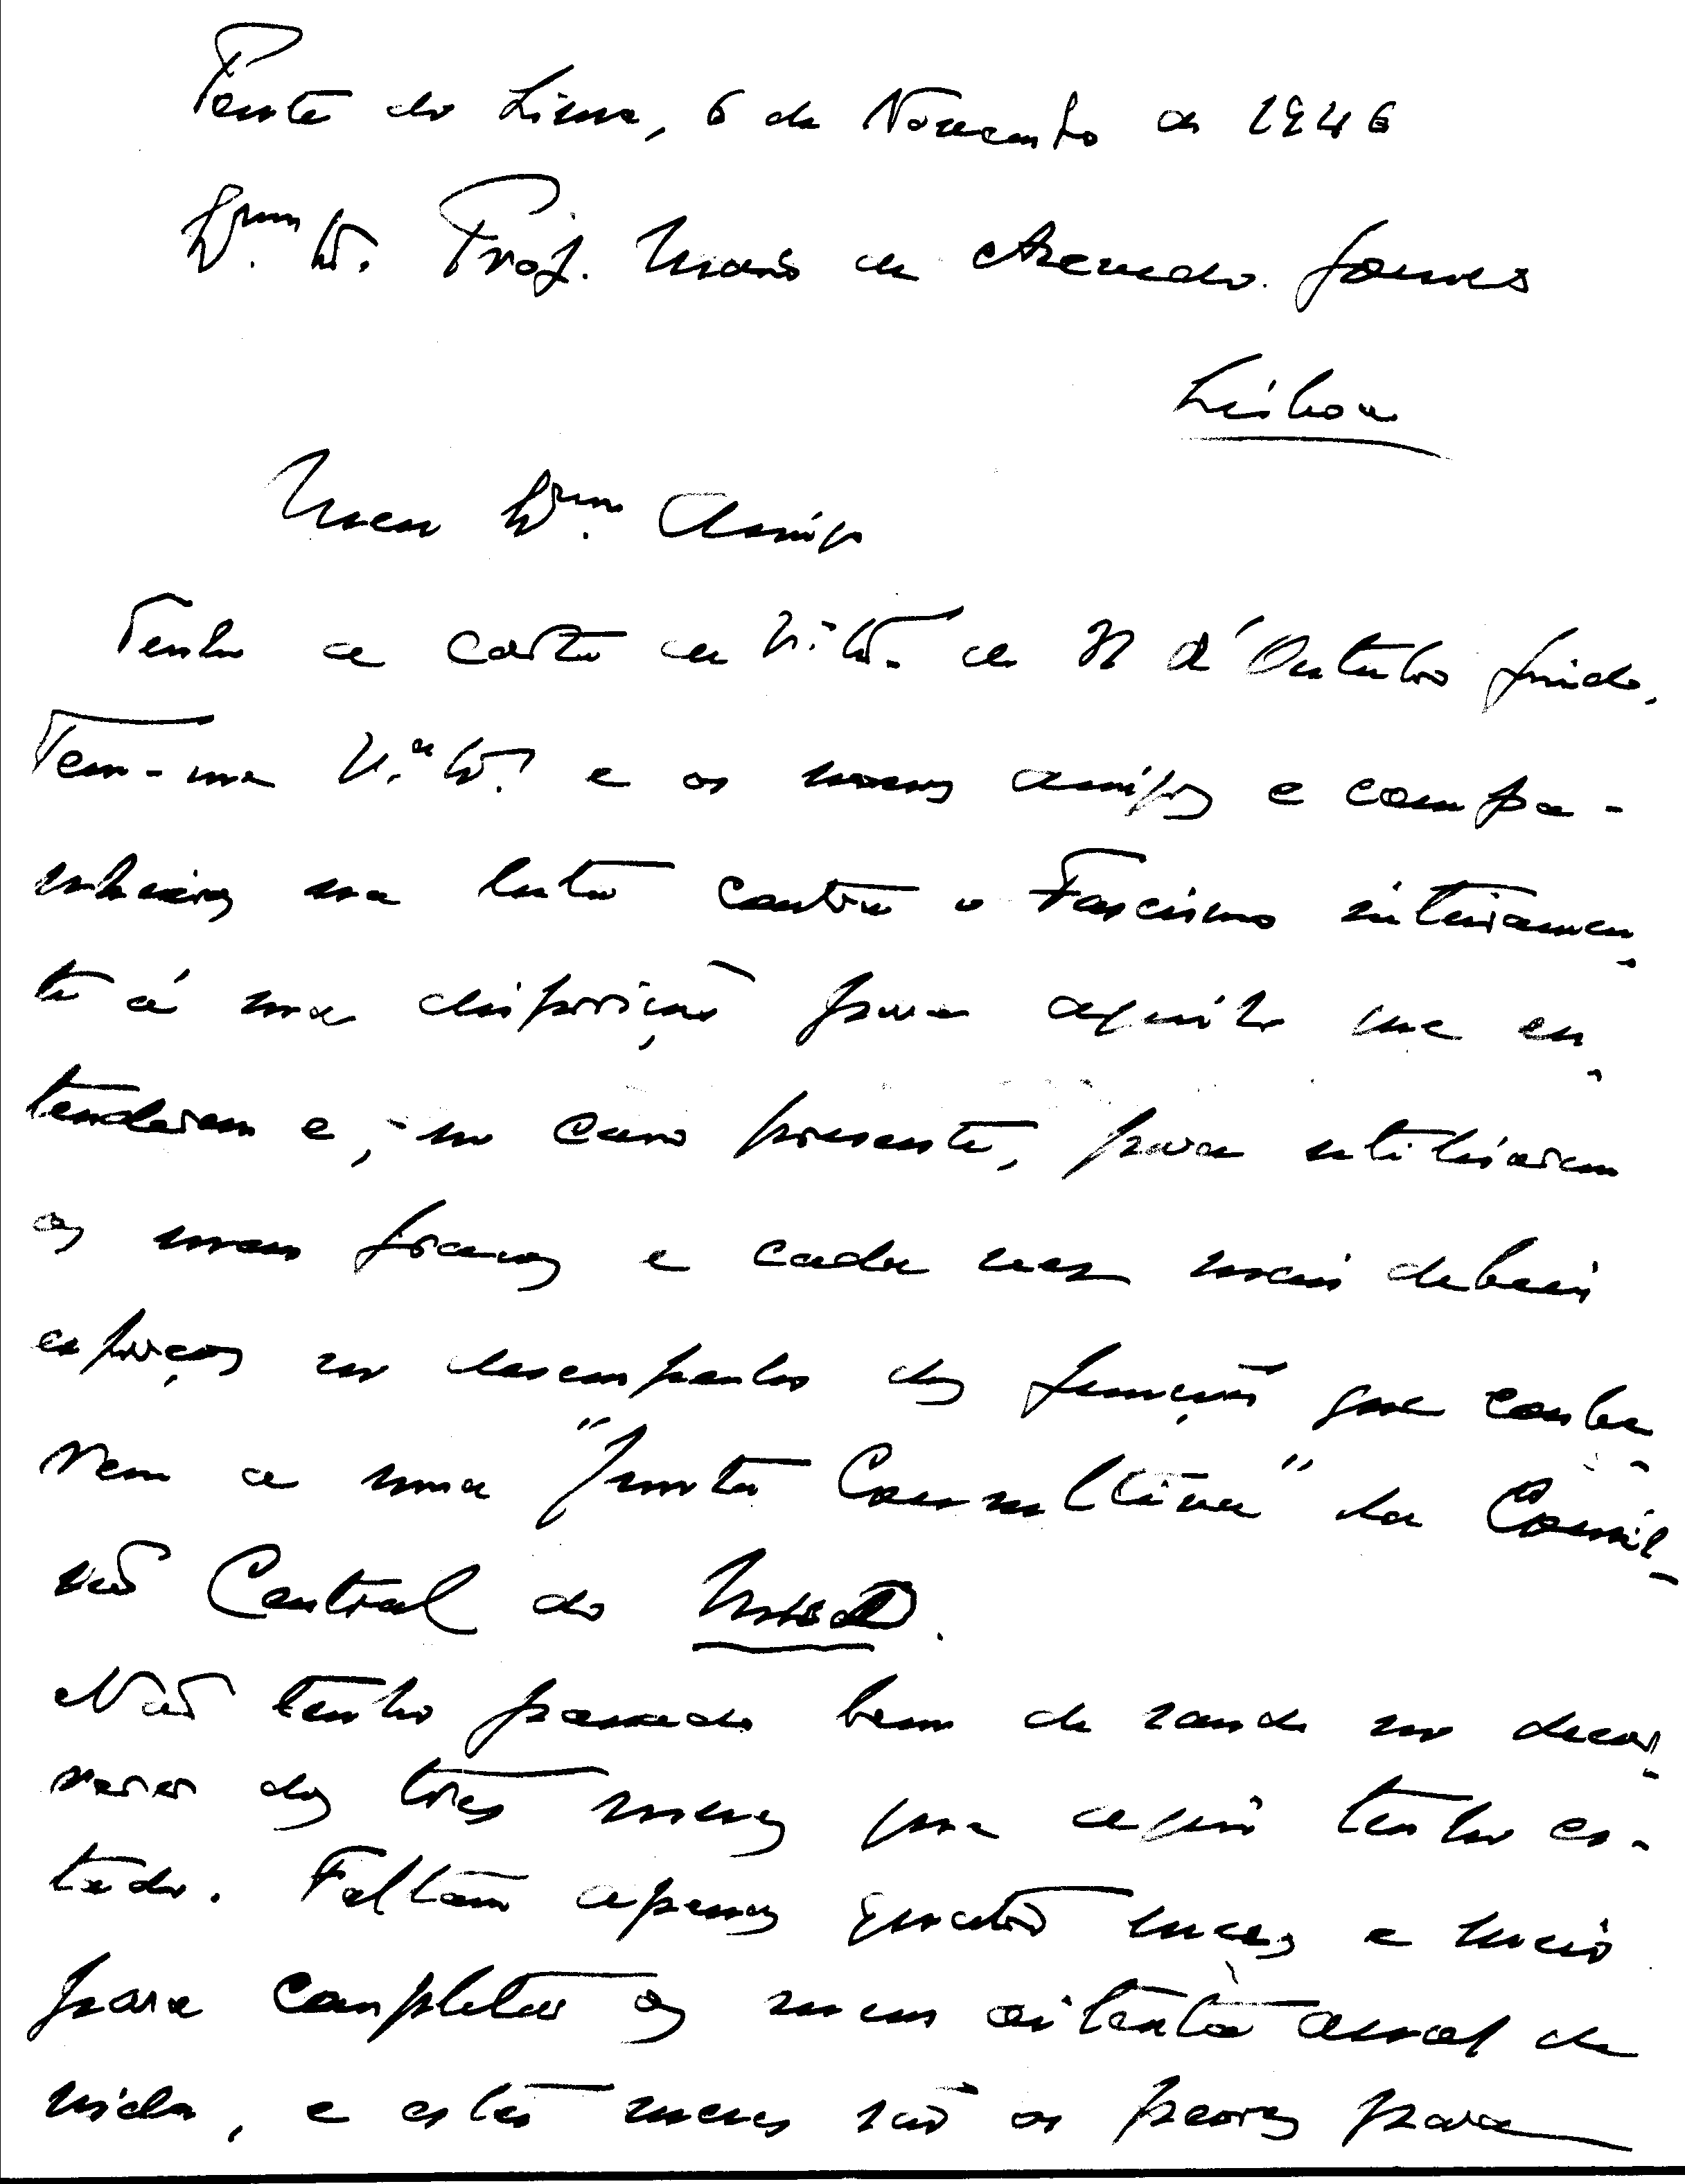 Ponte do Lima, 6 de Novembro de 1946
Exmo. Sr. Prof. Mario de Azevedo Gomes
Lisboa
Meu Exmo. Amigo
Tenho a carta de V. Ex. de d'Outubro findo.
Tem-me V.ª Ex.ª e os nossos amigos e compa-
nheiros na luta contra o Fascismo inteiramen-
te á sua disposição para aquilo que en-
tenderem e, no caso presente, para utilisarem
os meus fracos e cada vez mais debeis
esforços no desempenho das funções que coube-
rem a uma "Junta Consultiva" da Comis-
são Central do MUD.
Não tenho passado bem de saude no decor-
rer dos três meses que aqui tenho es-
tado. Faltam apenas quatro meses e meio
para completar os meus oitenta anos de
vida, e estes meses são os peores para